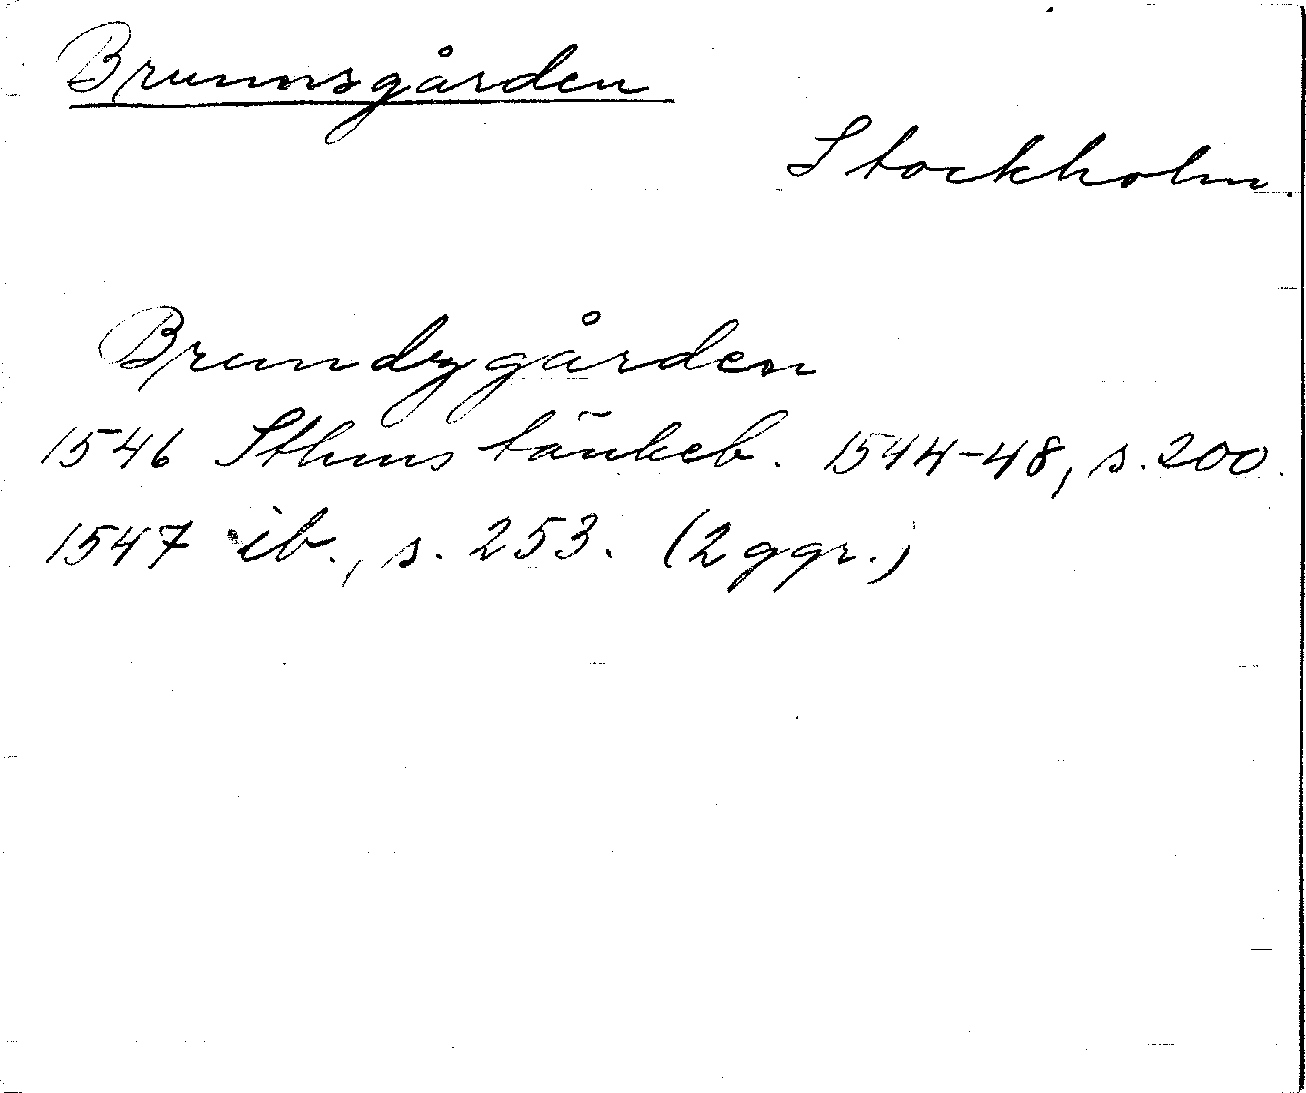 Brunnsgården
Stockholm.
Brundzgården
1546 Sthms tänkeb. 1544-48, s. 200.
1547 ib., s. 253. (2 ggr.)